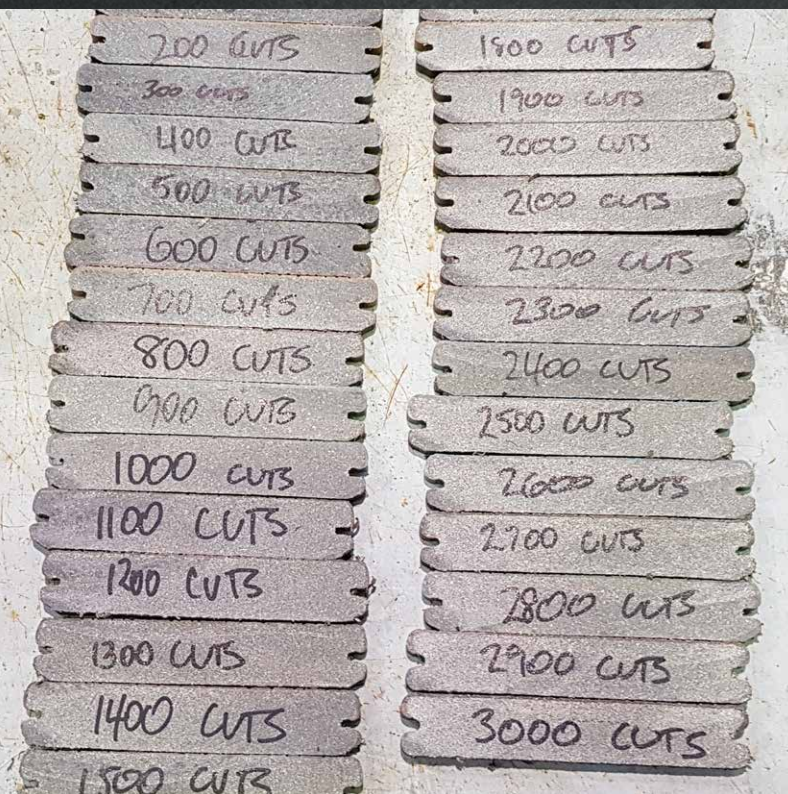 200 CUTS
300 CUTS
400 CUTS
500 CUTS
600 CUTS
700 CUTS
800 CUTS
900 CUTS
1000 CUTS
1100 CUTS
1200 CUTS
1300 CUTS
1400 CUTS
1500 CUTS
1800 CUTS
1900 CUTS
2000 CUTS
2100 CUTS
2200 CUTS
2300 CUTS
2400 CUTS
2500 CUTS
2600 CUTS
2700 CUTS
2800 CUTS
2900 CUTS
3000 CUTS